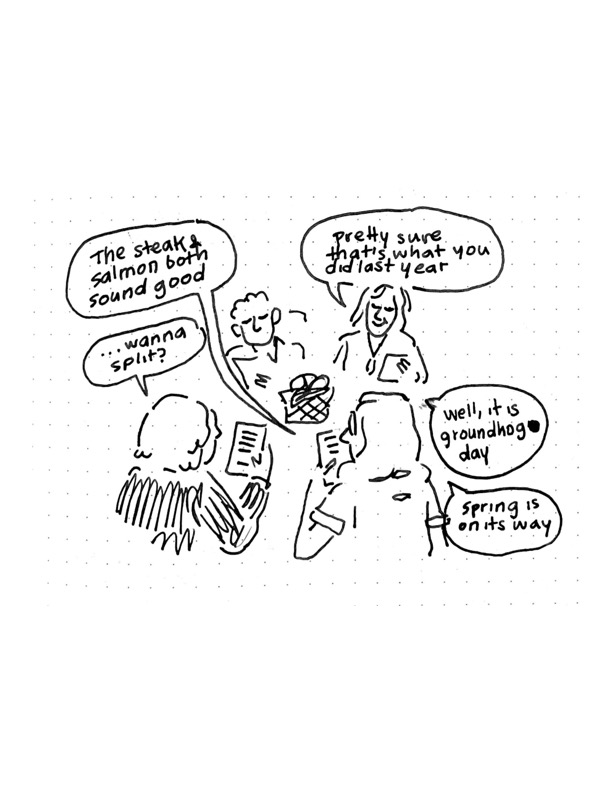 The steak &
salmon both
sound good
...wanna
split?
pretty sure
that's what you
did last year
well, it is
groundhog
day
spring is
on its way